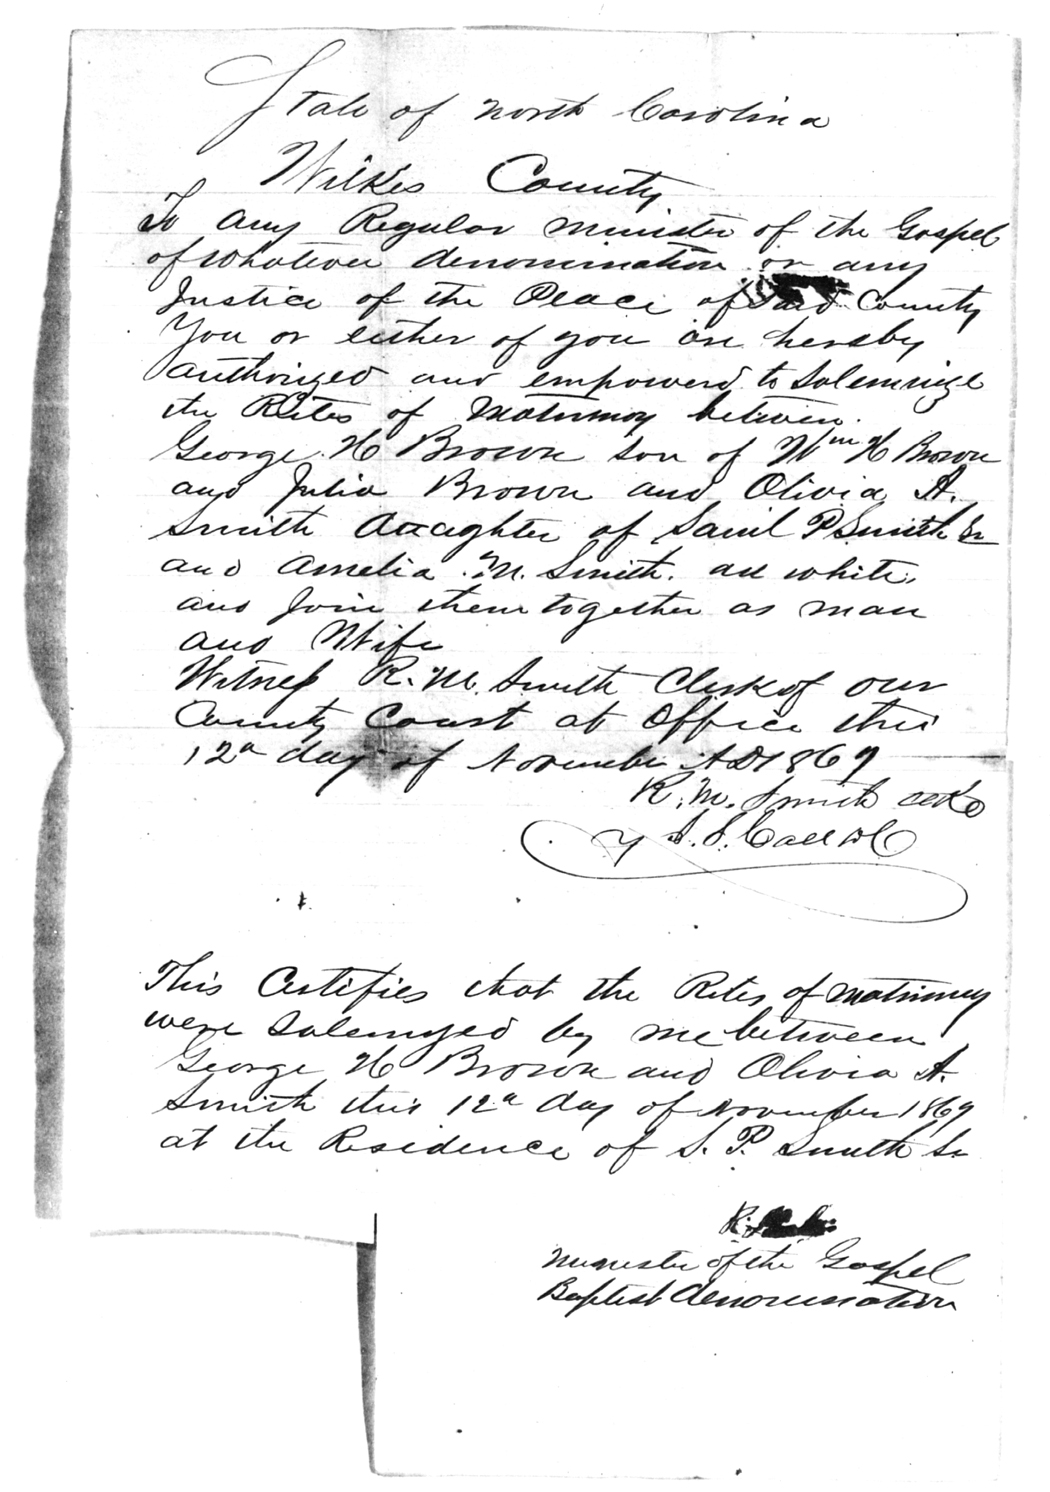 State of North Carolina
Wilkes County
To any Regular minister of the Gospel
of whatever denomination or any
Justice of the Peace of said County
You or either of you are hereby
authorized and empowerd to Solemnize
the Rites of Matrimoy between
George H Brown Son of Wm H Brown
and Julia Brown and Olivia A.
Smith daughter of Saml P Smith Sr
and Amelia M. Smith. all white,
and Join them together as man
and Wife
Witness R. M. Smith Clerk of our
County Court at Office this
12th day of November AD 1869
R. M. Smith
S. J. Call
This Certifies that the Rites of Matrimony
were Solemnized by me between
George H Brown and Olivia A.
Smith this 12th day of November 1869
at the Residence of S. P. Smith Sr
Minister of the Gospel
Baptist denomination